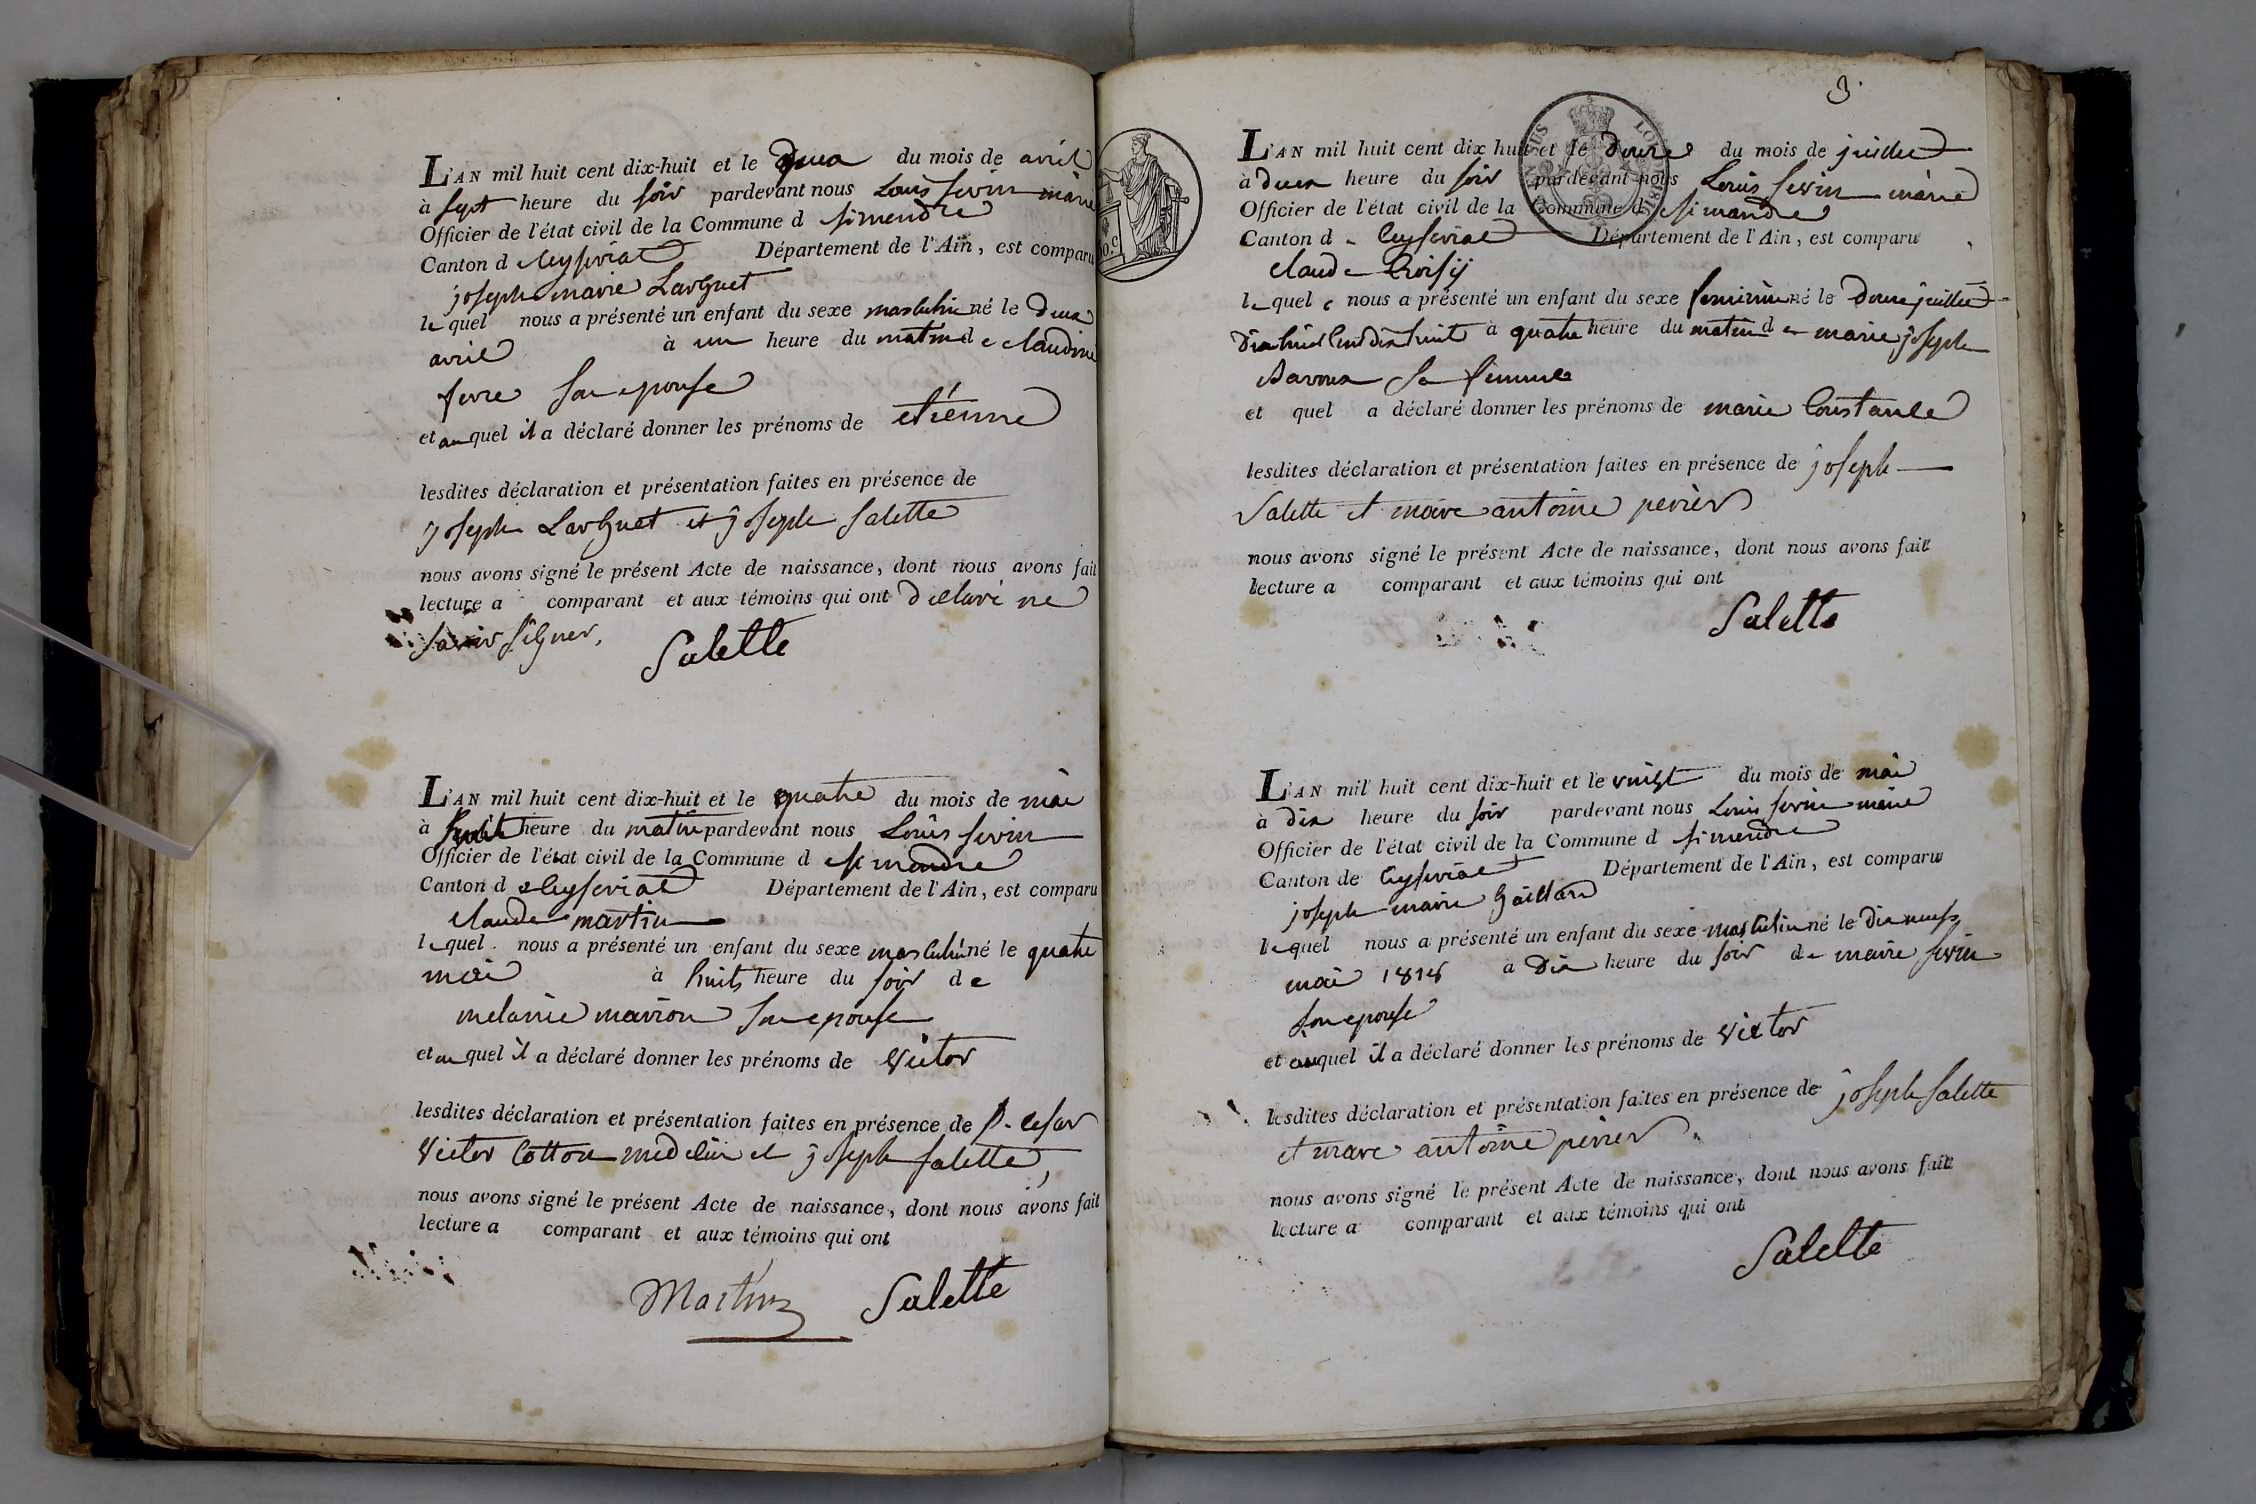 L'AN mil huit cent dix-huit et le deux du mois de avril
à sept heure du soir pardevant nous Louis sevin maire
Officier de l'état civil de la Commune d simendre
Canton d ceyseriat Département de l'Ain, est comparu
joseph marie Larguet
lequel nous a présenté un enfant du sexe masculin né le deux
avril à un heure du matin de claudine
fevre son epouse
et auquel il a déclaré donner les prénoms de etienne
lesdites déclaration et présentation faites en présence de
joseph Larguet et joseph salette
nous avons signé le présent Acte de naissance, dont nous avons fait
lecture a comparant et aux témoins qui ont declaré ne
savoir signer,
Salette
L'AN mil huit cent dix-huit et le quatre du mois de mai
à heure du matin pardevant nous Louis sevin
Officier de l'état civil de la Commune d simandre
Canton d ceyseriat Département de l'Ain, est comparu
claude martin
lequel nous a présenté un enfant du sexe masculin né le quatre
mai à huit heure du soir de
melanie marion son epouse
et au quel il a déclaré donner les prénoms de victor
lesdites déclaration et présentation faites en présence de P. cesar
victor Cotton medecin et joseph salette,
nous avons signé le présent Acte de naissance, dont nous avons fait
lecture a comparant et aux témoins qui ont
Martin Salette
3.
L'AN mil huit cent dix huit et le douze du mois de juillet
à deux heure du soir pardevant nous Louis sevin maire
Officier de l'état civil de la Commune d simandre
Canton de Ceyseriat Département de l'Ain, est comparu
claude
lequel nous a présenté un enfant du sexe feminin né le douze juillet
dix huit cent dix huit à quatre heure du matin de marie joseph
sa femme
et quel a déclaré donner les prénoms de marie Constance
lesdites déclaration et présentation faites en présence de joseph
Salette et marc antoine perier
nous avons signé le présent Acte de naissance, dont nous avons fait
lecture a comparant et aux témoins qui ont
Salette
L'AN mil huit cent dix-huit et le vingt du mois de mai
à dix heure du soir pardevant nous Louis sevin maire
Officier de l'état civil de la Commune d simendre
Canton de Ceyseriat Département de l'Ain, est comparu
joseph marie Gaillard
lequel nous a présenté un enfant du sexe masculin né le dix neuf
mai 1818 à dix heure du soir de marie sevin
son epouse
et auquel il a déclaré donner les prénoms de victor
lesdites déclaration et présentation faites en présence de joseph salette
et marc antoine perier.
nous avons signé le présent Acte de naissance, dont nous avons fait
lecture a comparant et aux témoins qui ont
Salette